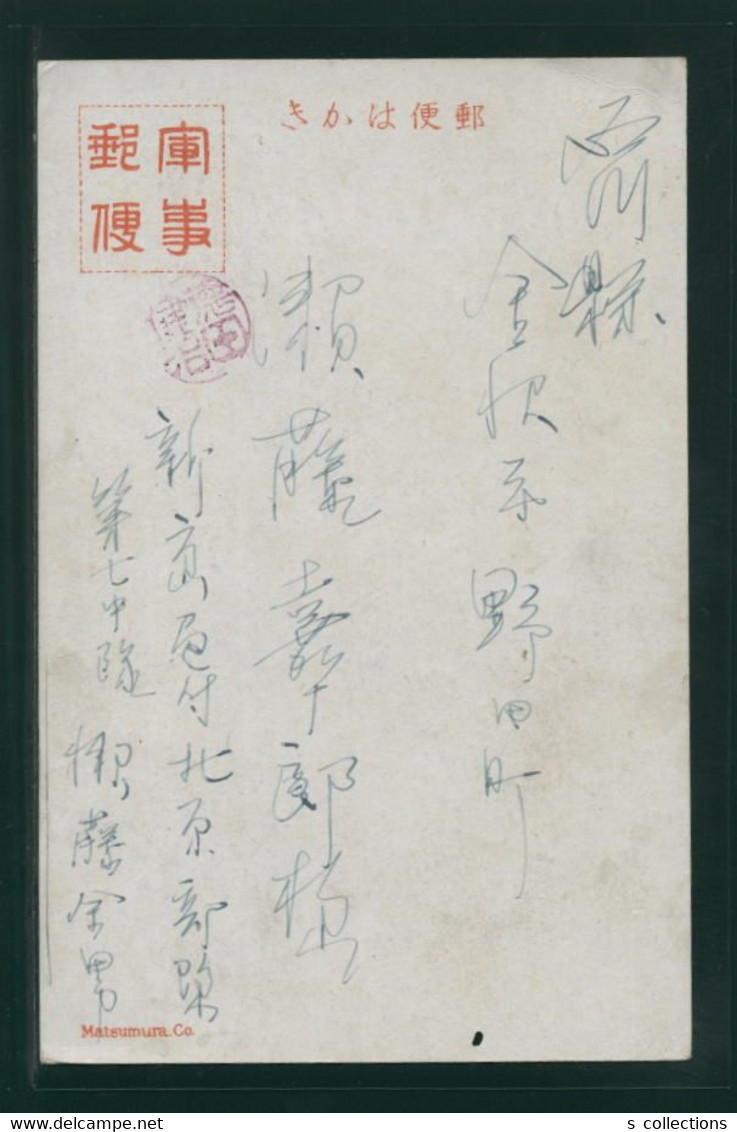 郵便はかき
軍事
郵便
石川縣
金沢市野田町
瀬藤嘉十郎様
新高気付北原部隊
第七中隊 瀬藤余男
Matsumura.Co.
s collections